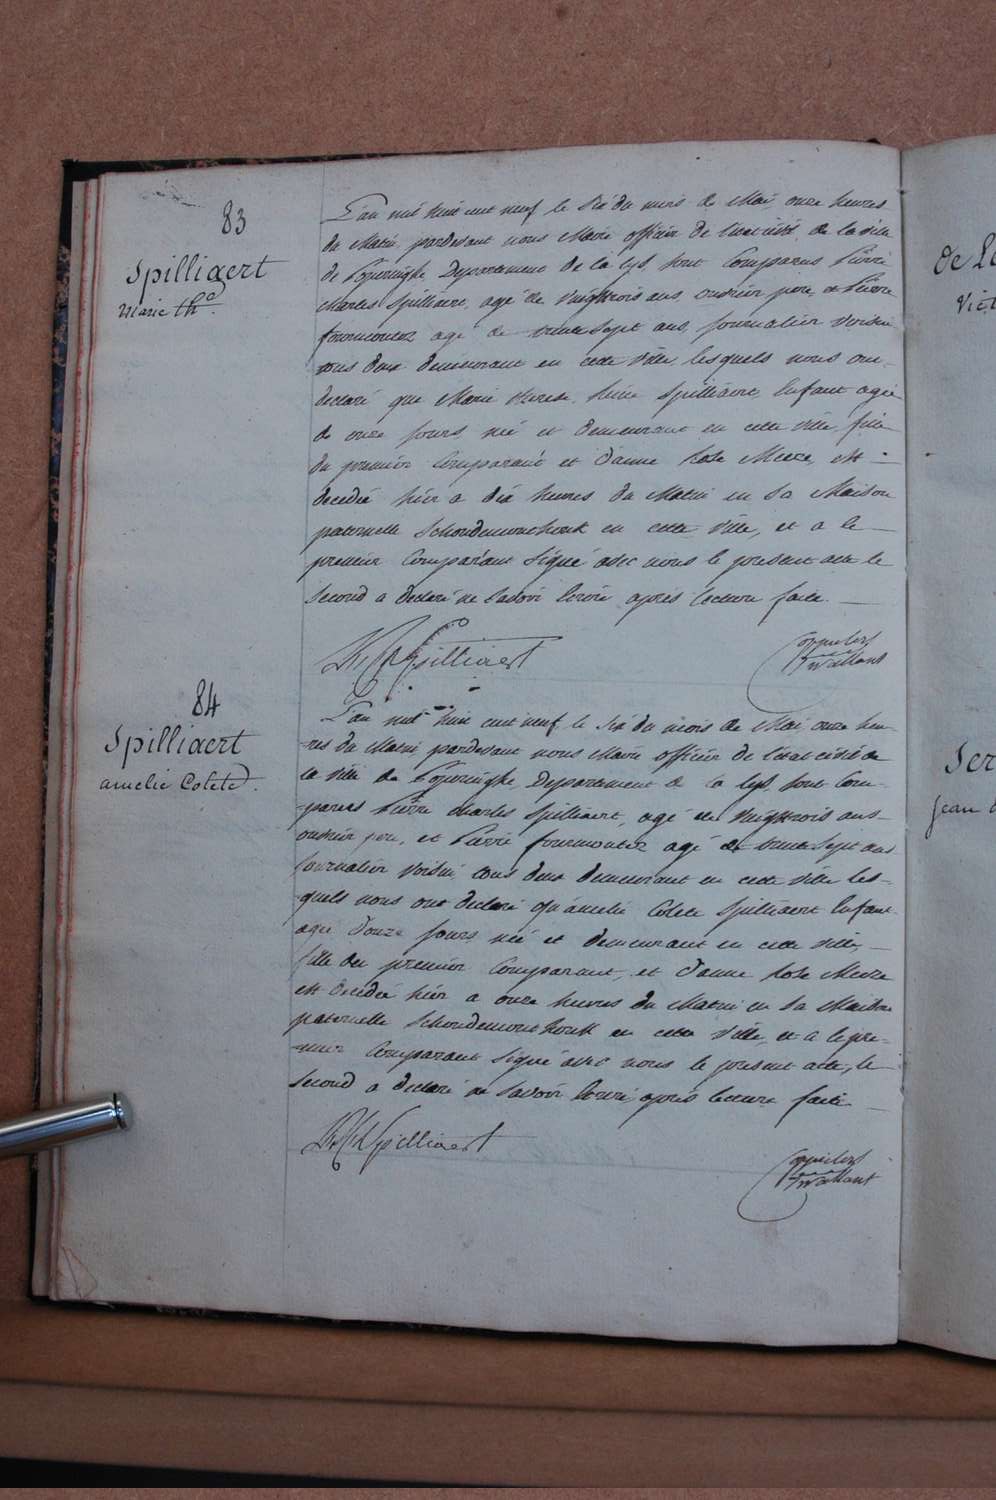 83
Spilliaert
Marie Th.e
L'an mil huit cent neuf le Six du mois de Mai, onze heures
du Matin, pardevant nous Maire officier de l'etat civil de la ville
de Poperinghe Departement de la Lys, sont Comparus Pierre
Charles Spilliaert, agé de vingttrois ans, ouvrier, pere, et Pierre
fourmentez agé de trente sept ans, journalier voisin
tous deux demeurant en cette ville lesquels nous ont
declaré que Marie therese Spilliaert, Enfant agée
de onze jours, née et demeurant en cette ville, fille
du premier Comparant et d'anne Rose Meeze, est
decedée hier a dix heures du Matin en sa Maison
paternelle Schoudemonthouk en cette ville, et a le
premier Comparant signé avec nous le present acte le
second a declaré ne savoir Ecrire après lecture faite.
P. Ch Spilliaert
84
Spilliaert
amelie Colete.
L'an mil huit cent neuf le Six du mois de Mai, onze heu-
-res du Matin pardevant nous Maire officier de l'etat civil de
la ville de Poperinghe, Departement de la Lys, sont Com-
-parus Pierre Charles Spilliaert, agé de vingttrois ans-
ouvrier pere, et Pierre fourmentez agé de trente sept ans
journalier voisin, tous deux demeurant en cette ville les-
-quels nous ont declaré qu'amelie Colete Spilliaert Enfant
agée d'onze jours née et demeurant en cette ville,
fille du premier Comparant, et d'anne Rose Meeze
est decedée hier a onze heures du Matin en sa Maison
paternelle Schoudemonthouk en cette ville, et a le pre-
-mier Comparant signé avec nous le present acte, le
second a declaré ne savoir Ecrire après lecture faite
P. Ch Spilliaert